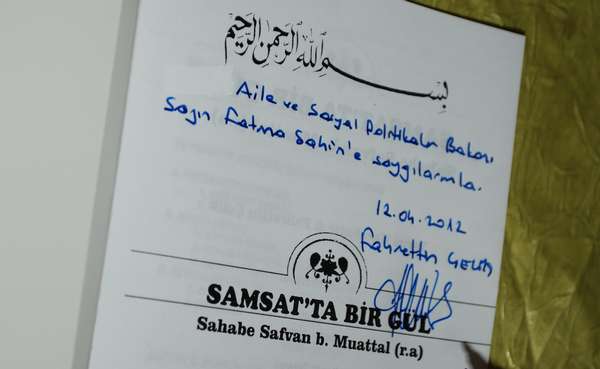 بسم الله الرحمن الرحيم
Aile ve Sosyal Politikalar Bakanı
Sayın Fatma Şahin'e saygılarımla.
12.04.2012
Fahrettin
SAMSAT'TA BİR GÜL
Sahabe Safvan b. Muattal (r.a)